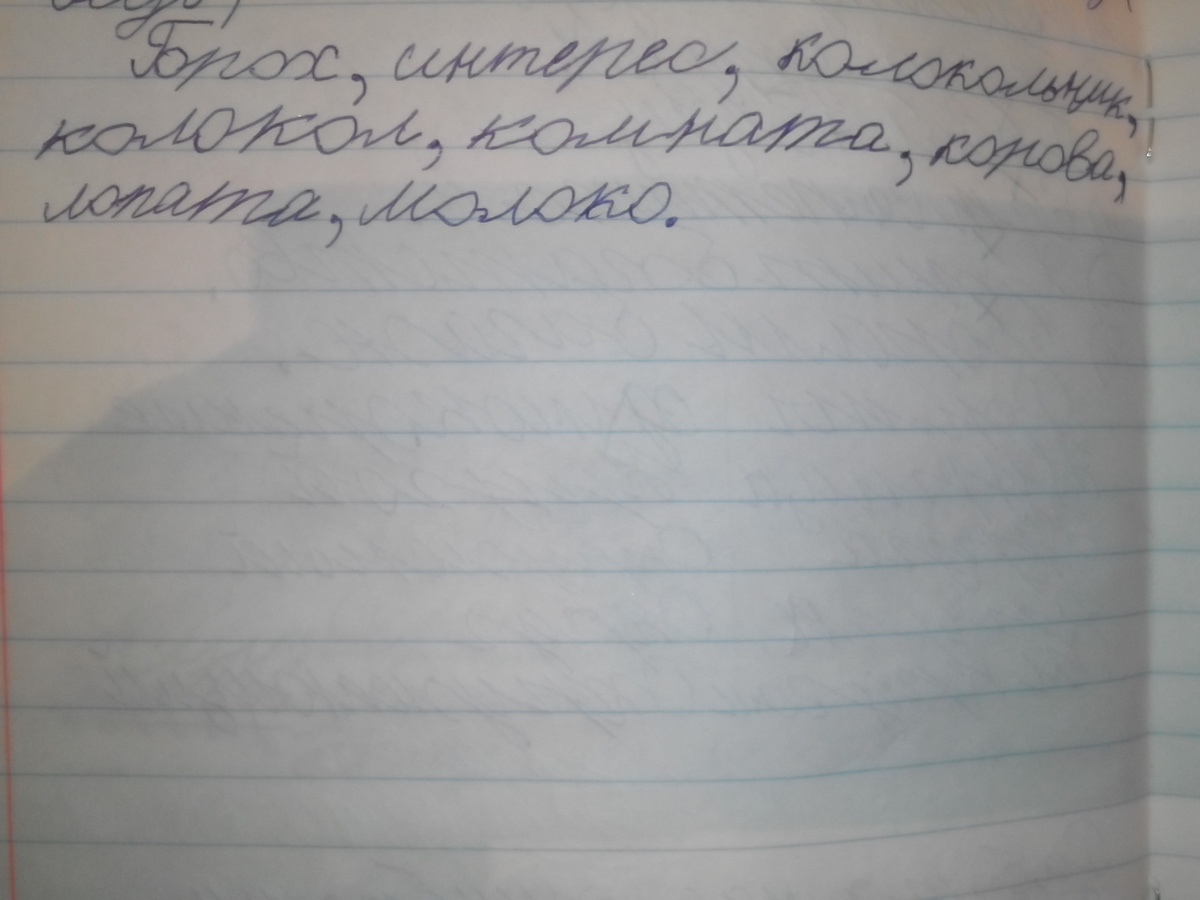 Брох, интерес, колокольчик,
колокол, комната, корова,
лопата, молоко.